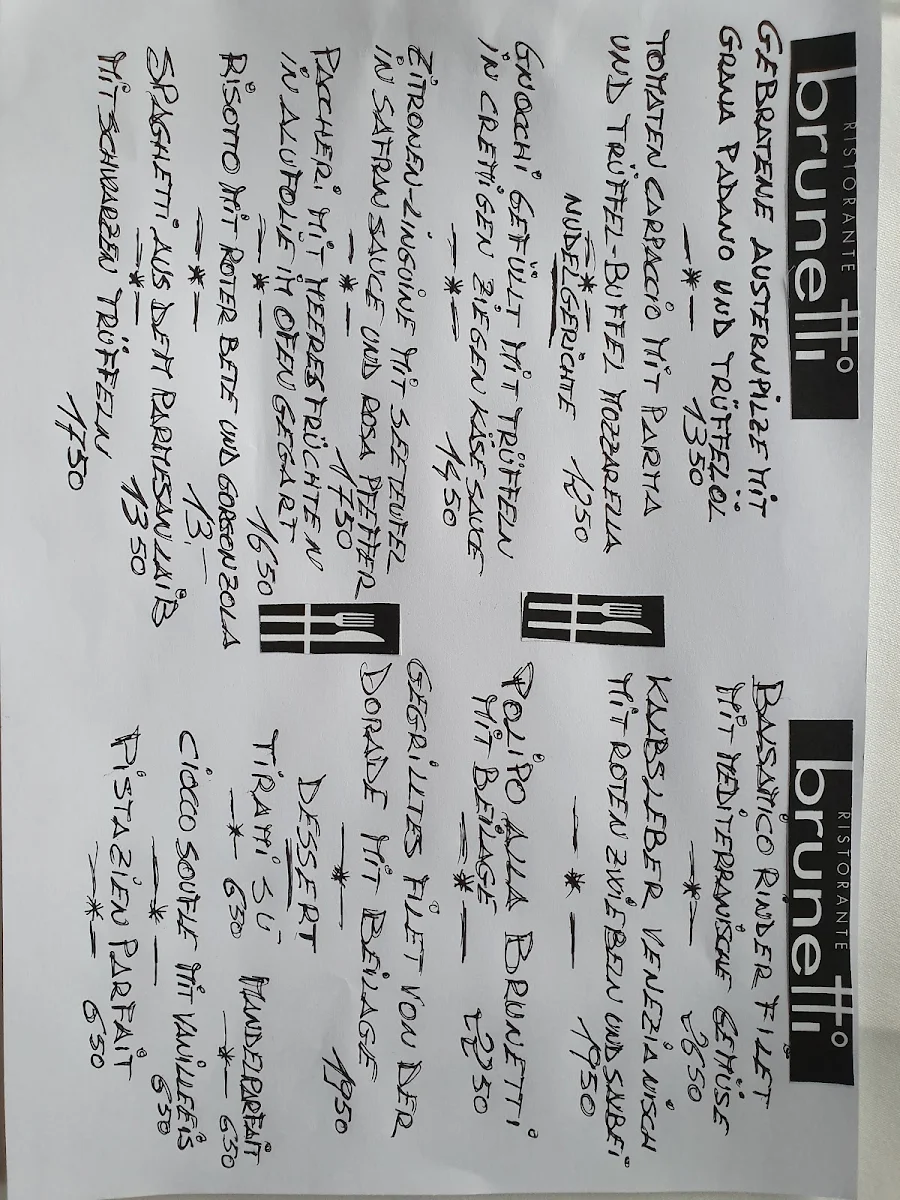 RISTORANTE
brunetti
GEBRATENE AUSTERNPILZE MIT
GRANA PADANO UND TRÜFFELÖL
1350
TOMATEN CARPACCIO MIT PARMA
UND TRÜFFEL-BUFFEL MOZZARELLA
1250
NUDELGERICHTE
GNOCCHI GEFÜLLT MIT TRÜFFELN
IN CREMIGEN ZIEGENKÄSESAUCE
1450
ZITRONEN-LINGUINE MIT SEETEUFEL
IN SAFRAN SAUCE UND ROSA PFEFFER
1750
PACHERI MIT MEERESFRÜCHTEN
IN ALUFOLIE IM OFEN GEGART
1650
RISOTTO MIT ROTER BETE UND GORGONZOLA
13.–
SPAGHETTI AUS DEM PARMESANLAIB
1350
MIT SCHWARZEN TRÜFFELN
1750
RISTORANTE
brunetti
BALSAMICO RINDER FILET
MIT MEDITERRANISCHE GEMÜSE
2650
KALBSLEBER VENEZIANISCH
MIT ROTEN ZWIEBELN UND SALBEI
1950
POLIPO ALLA BRUNETTI
MIT BEILAGE
2250
GEGRILLTES FILET VON DER
DORADE MIT BEILAGE
1950
DESSERT
TIRAMI SÙ 650
MANDELPARFAIT 650
CIOCCO SOUFLE MIT VANILLEEIS
650
PISTAZIEN PARFAIT
650